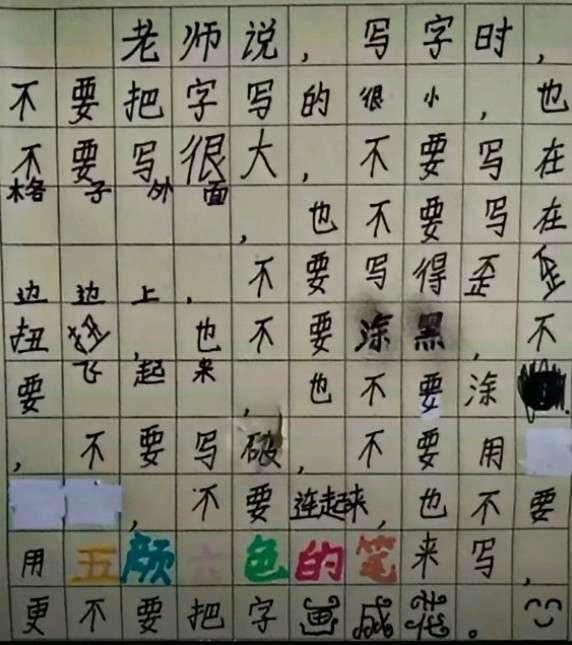 老师说，写字时，
不要把字写的很小，也
不要写很大，不要写在
格子外面，也不要写在
边边上，不要写得歪歪
扭扭，也不要涂黑，不
要飞起来，也不要涂
，不要写破，不要用
，不要连起来，也不要
用五颜六色的笔来写，
更不要把字画成花。